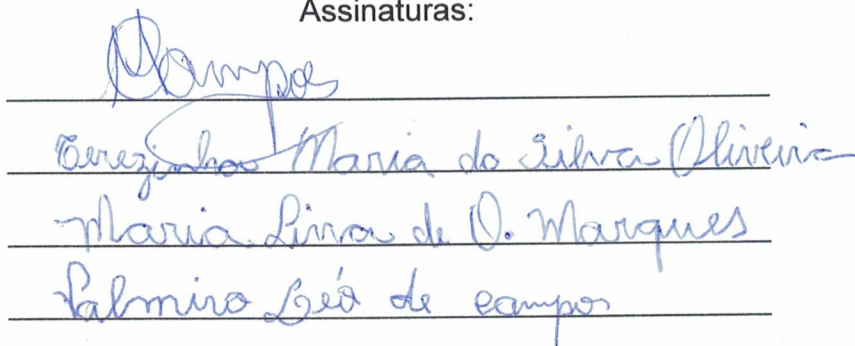 Assinaturas:
Campos
Terezinha Maria da Silva Oliveira
Maria Lina de O. Marques
Palmiro Leó de campos